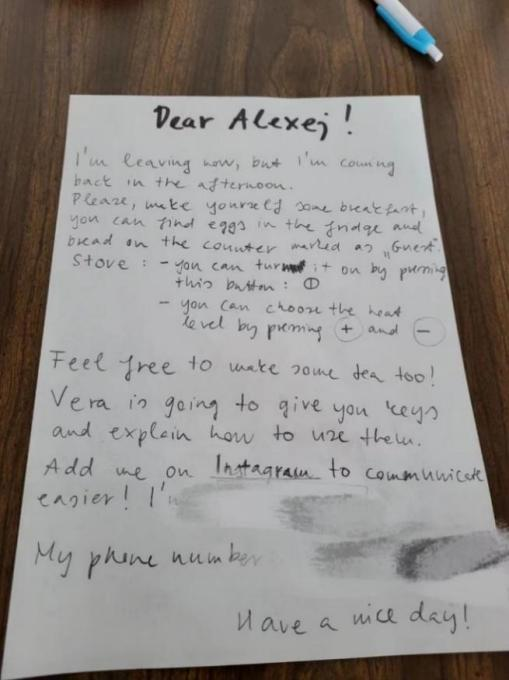 Dear Alexej!
I'm leaving now, but I'm coming
back in the afternoon.
Please, make yourself some breakfast,
you can find eggs in the fridge and
bread on the counter marked as „Guest".
Stove: - you can turn it on by pressing
this button:
- you can choose the heat
level by pressing + and -
Feel free to make some tea too!
Vera is going to give you keys
and explain how to use them.
Add me on Instagram to communicate
easier! I'm
My phone number
Have a nice day!